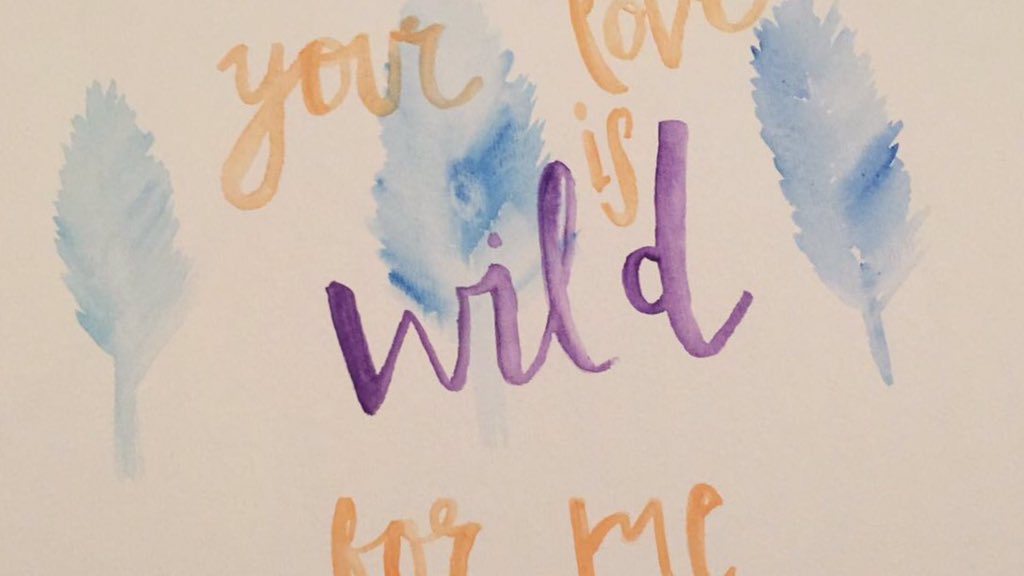 your love
is
wild
for me